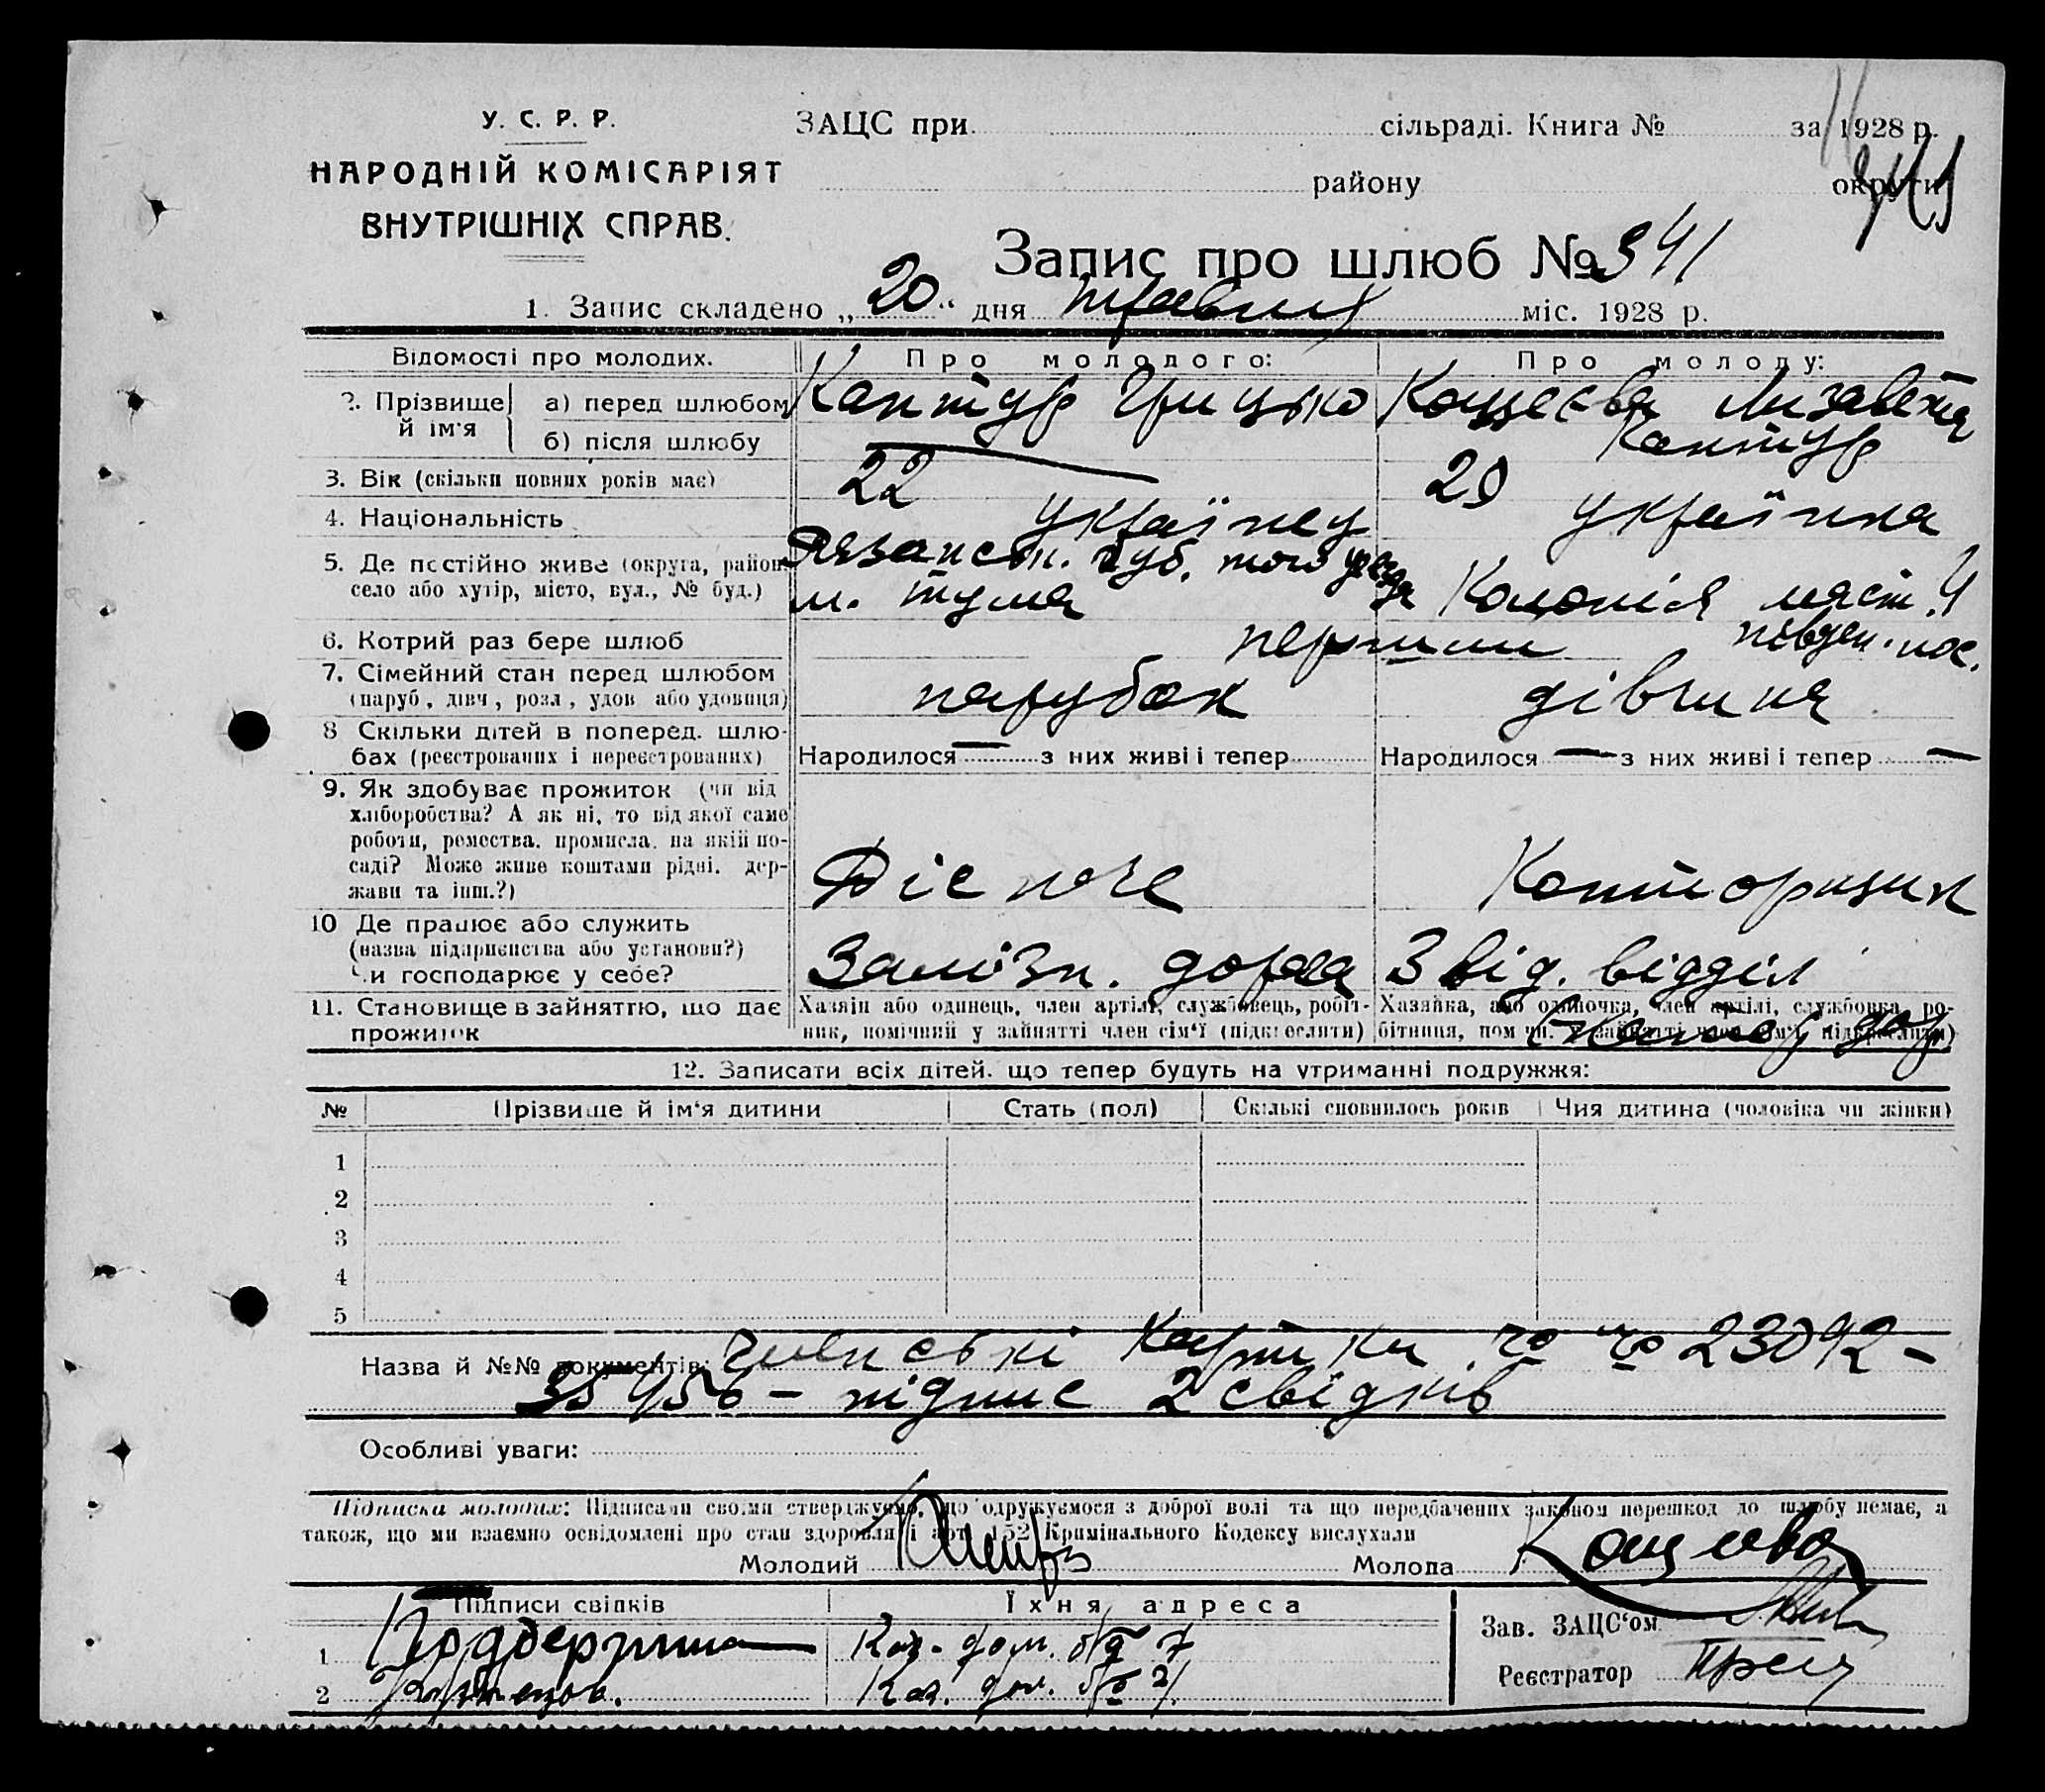 У. С. Р. Р.
НАРОДНІЙ КОМІСАРІЯТ
ВНУТРІШНІХ СПРАВ.
ЗАЦС при сільраді. Книга № за 1928 р.
району округи
Запис про шлюб № 341
1. Запис складено „20“ дня травня міс. 1928 р.
Відомості про молодих. Про молодого: Про молоду:
2. Прізвище й ім'я а) перед шлюбом Кантур Грицько Кощеєва Лизавета
б) після шлюбу — Кантур
3. Вік (скільки повних років має) 22 20
4. Національність українец українка
5. Де постійно живе (округа, район, село або хутір, місто, вул., № буд.) Рязанськ. губ. того уезда м. Тума Колонія південн. пос.
6. Котрий раз бере шлюб первий
7. Сімейний стан перед шлюбом (паруб., дівч., розл., удов. або удовиця) парубок дівчина
8 Скільки дітей в поперед. шлюбах (реєстрованих і нереєстрованих) Народилося — з них живі і тепер Народилося — з них живі і тепер —
9. Як здобуває прожиток (чи від
хліборобства? А як ні, то від якої саме
роботи, ремества, промисла, на якій посаді? Може живе коштами рідні, держави та інш.?) Конторщик
10 Де працює або служить
(назва підприємства або установи?)
Чи господарює у себе? Залізн. дорога відділ
11. Становище в зайняттю, що дає прожиток Хазяїн або одинець, член артілі, службовець, робітник, помічний у зайнятті член сім'ї (підкреслити) Хазяйка, або одиночка, член артілі, службовка, робітниця, помічн. у зайнятті член сім'ї (підкреслити)
12. Записати всіх дітей, що тепер будуть на утриманні подружжя:
№ Прізвище й ім'я дитини Стать (пол) Скількі сповнилось років Чия дитина (чоловіка чи жінки)
1
2
3
4
5
Назва й №№ документів: картки № № 23092 —
35456 — підпис 2 свідків
Особливі уваги:
Підписка молодих: Підписами своїми стверджуємо, що одружуємося з доброї волі та що передбачених законом перешкод до шлюбу немає, а
також, що ми взаємно освідомлені про стан здоровля і арт. 152 Кримінального Кодексу вислухали
Молодий Молода Кощеева
Підписи свідків Їхня адреса
1
2
Зав. ЗАЦС'ом
Реєстратор